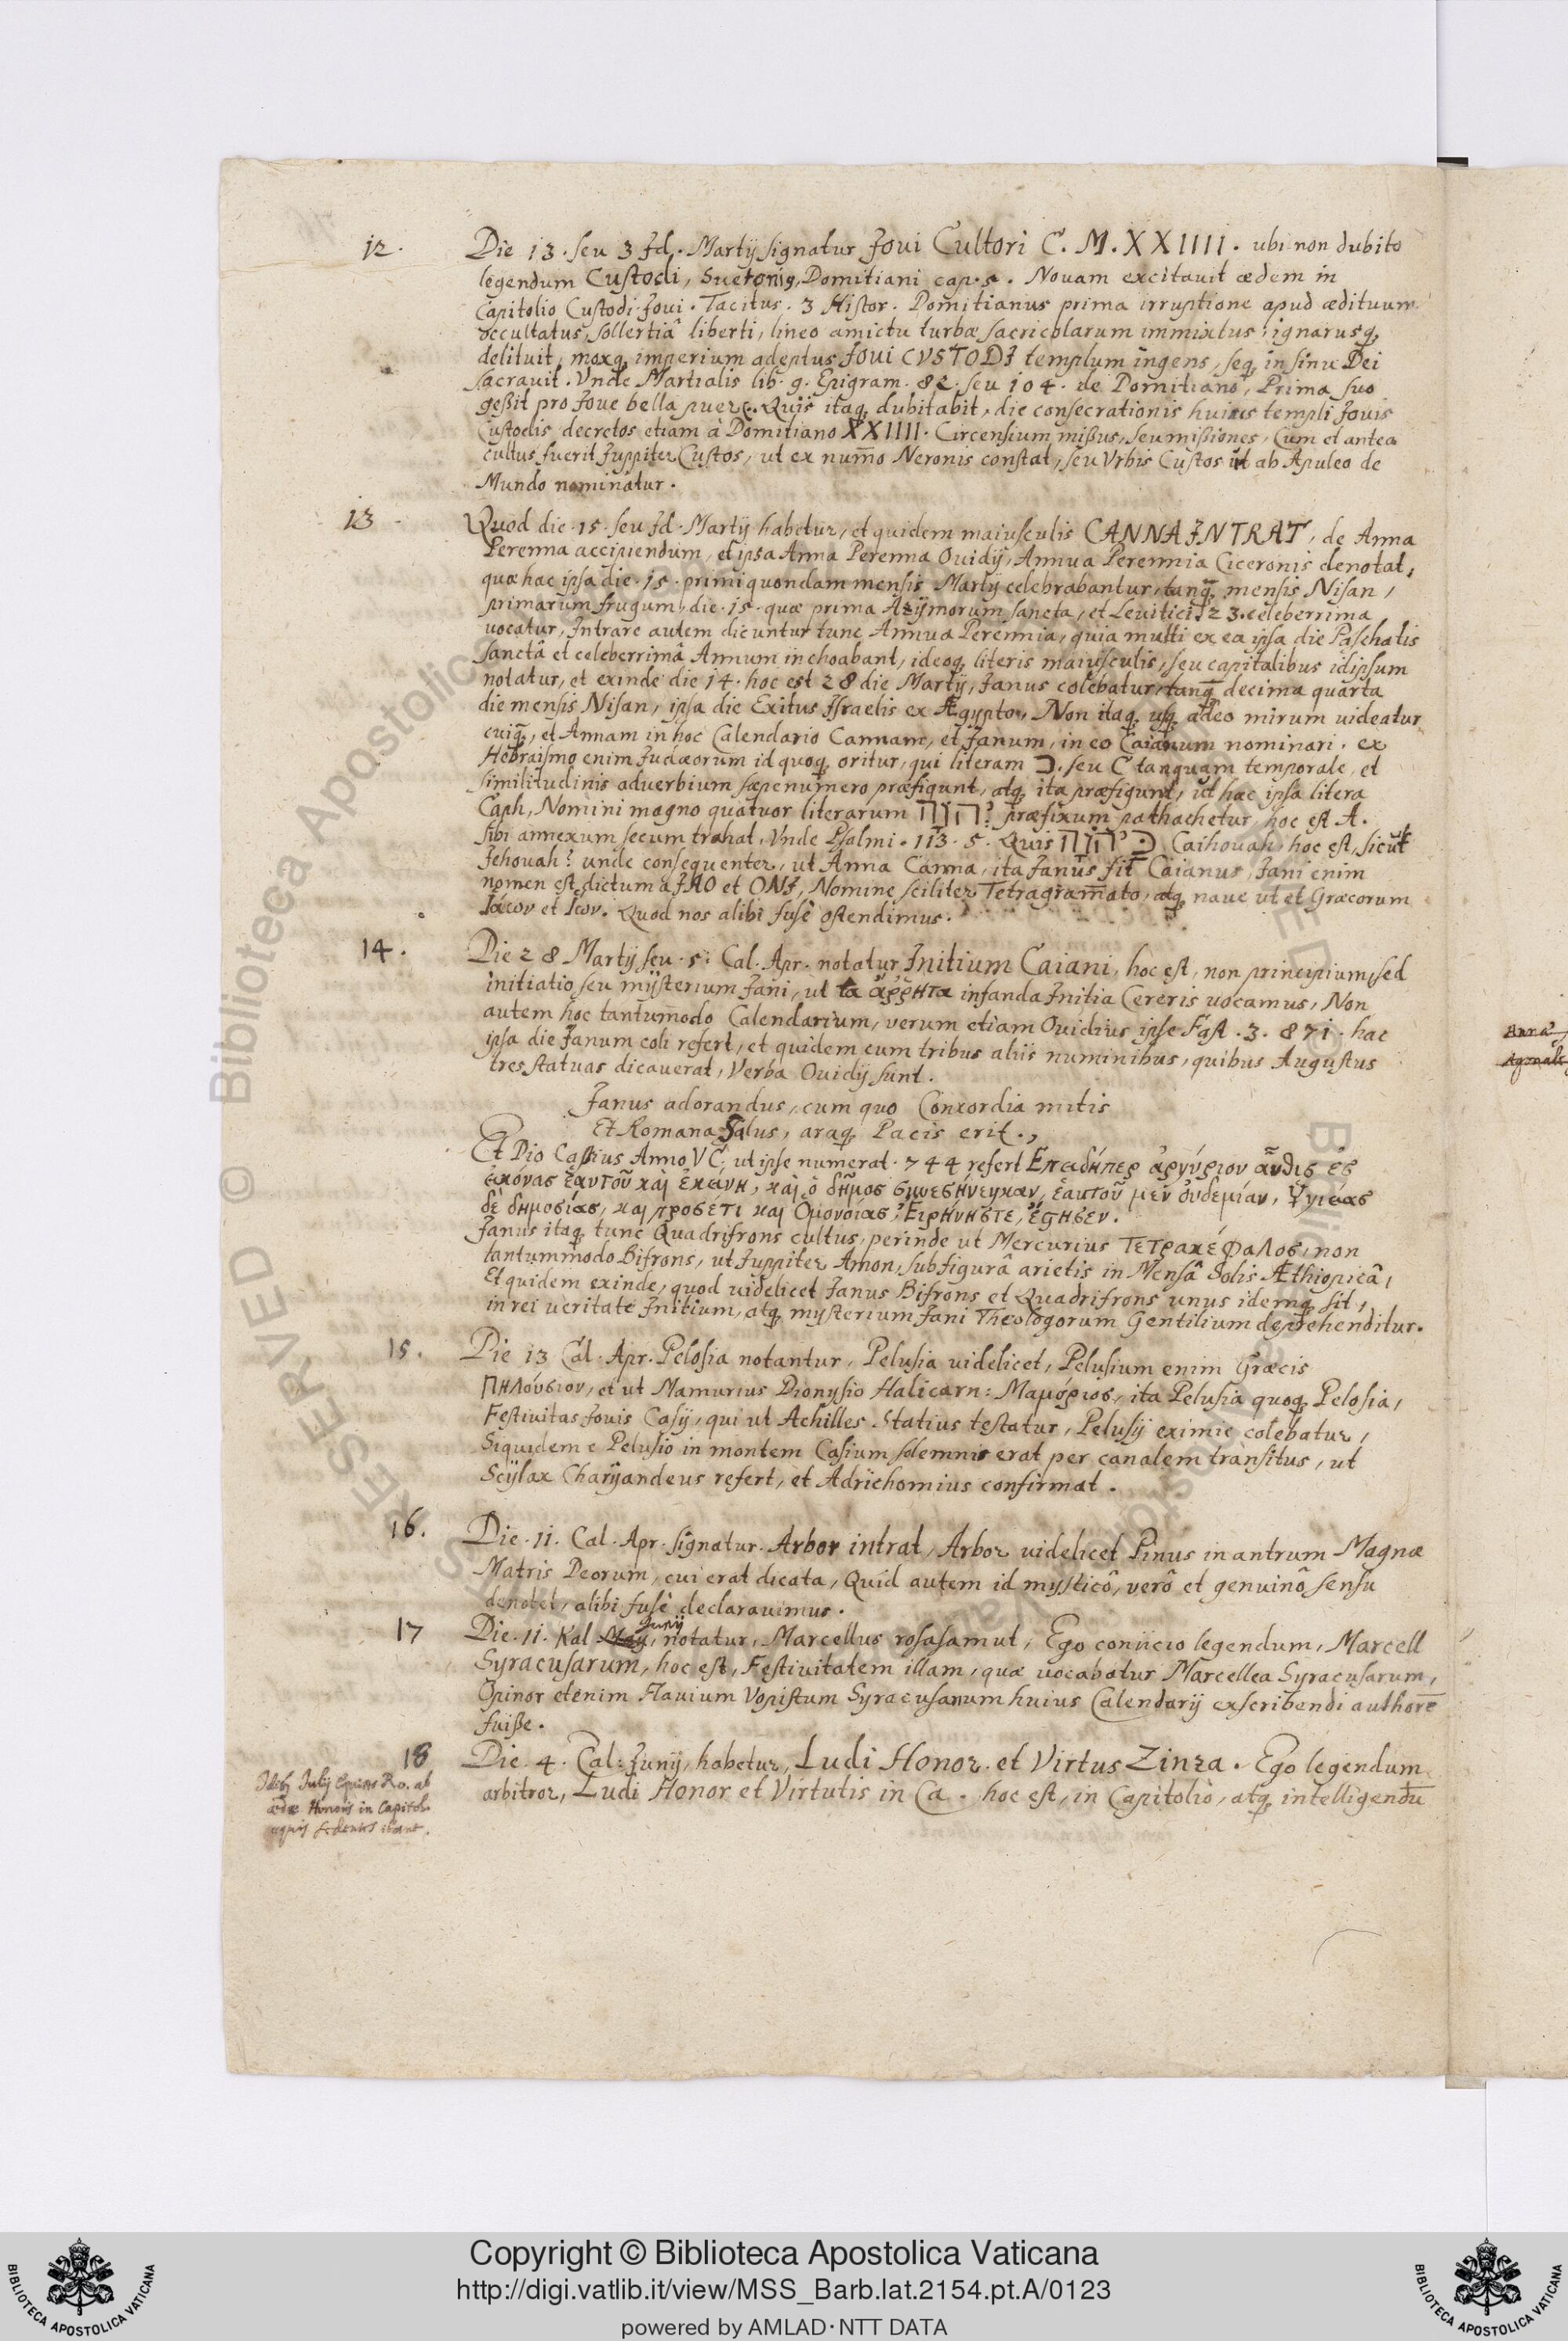 12. Die 13. seu 3 Jd. Martij signatur Joui Cultori C. M. XXIIII. ubi non dubito
legendum Custodi, Suetonig, Domitiani cap. 5. Nouam excitauit ædem in
Capitolio Custodi Joui. Tacitus. 3 Histor. Domitianus prima irruptione apud ædituum
occultatus, sollertiâ liberti, lineo amictu turbæ sacricolarum immixtus, ignarusq,
delituit, moxq, imperium adeptus JOUI CVSTODJ templum ingens, seq, in sinu Dei
sacrauit. Vnde Martialis lib. 9. Epigram. 82. seu 104. de Domitiano, Prima suo
geßit pro Joue bella puer. Quis itaq, dubitabit, die consecrationis huius templi Jouis
Custodis decretos etiam à Domitiano XXIIII. Circensium mißus, seu mißiones, Cum et antea
cultus fuerit Juppiter Custos, ut ex num̄o Neronis constat, seu Vrbis Custos ut ab Apuleo de
Mundo nominatur.
13. Quod die. 15. seu Jd. Martij habetur, et quidem maiusculis CANNA JNTRAT, de Anna
Perenna accipiendum, et ipsa Anna Perenna Ouidij, Annua Perennia Ciceronis denotat,
quæ hac ipsa die. 15. primi quondam mensis Martij celebrabantur, tanq̄, mensis Nisan,
primarum frugum, die. 15. quæ prima Azymorum sancta, et Leuitici 23. celeberrima
uocatur, Intrare autem dicuntur tunc Annua Perennia, quia multi ex ea ipsa die Paschatis
sanctâ et celeberrimâ Annum inchoabant, ideoq, literis maiusculis, seu capitalibus idipsum
notatur, et exinde die 14. hoc est 28 die Martij, Janus colebatur, tanq̄, decima quarta
die mensis Nisan, ipsa die Exitus Jsraelis ex Ægypto, Non itaq, usq, adeo mirum uideatur
cuiq̄, et Annam in hoc Calendario Cannam, et Janum, in eo Caianum nominari. ex
Hebraismo enim Judæorum id quoq, oritur, qui literam כ. seu C tanquam temporale, et
similitudinis aduerbium sæpenumero præfigunt, atq, ita præfigunt, ut hæc ipsa litera
Caph, Nomini magno quatuor literarum יהוה præfixum pathachetur, hoc est A.
sibi annexum secum trahat, Vnde Psalmi. 113. 5. Quis כיהוה Caihouah, hoc est, sicut
Jehouah? unde consequenter, ut Anna Canna, ita Janus fit Caianus, Jani enim
nomen est dictum a JAO et ONJ, Nomine scilicet Tetragram̄ato, atq, naue ut et Græcorum
Ιάων et Ιων. Quod nos alibi fusê ostendimus.
14. Die 28 Martij seu. 5. Cal. Apr. notatur Jnitium Caiani, hoc est, non principium, sed
initiatio seu mysterium Jani, ut τα ἄῤῥητα infanda Jnitia Cereris uocamus, Non
autem hoc tantum̄odo Calendarium, verum etiam Ouidius ipse Fast. 3. 871. hac
ipsa die Janum coli refert, et quidem cum tribus aliis numinibus, quibus Augustus
tres statuas dicauerat, Verba Ouidij sunt.
Janus adorandus, cum quo Concordia mitis
Et Romana Salus, araq, Pacis erit.,
Et Dio Caßius Anno VC, ut ipse numerat. 744 refert Επειδήπερ ἀργύριον αὖθις ἐς
εἰκόνας ἑαυτοῦ καὶ ἐκείνη, καὶ ὁ δῆμος συνεσήνεγκαν, ἑαυτοῦ μεν ὀυδεμίαν, Ὑγιείας
δὲ δημοσίας, και προσέτι και Ομονοίας, Ειρήνηστε, ἔϛησεν.
Janus itaq, tunc Quadrifrons cultus, perinde ut Mercurius τετρακέφαλος, non
tantummodo Bifrons, ut Juppiter Amon, sub figurâ arietis in Mensâ Solis Æthiopicâ,
Et quidem exinde, quod uidelicet Janus Bifrons et Quadrifrons unus idemq, sit,
in rei ueritate Jnitium, atq, mysterium Jani Theologorum Gentilium deprehenditur.
15. Die 13 Cal. Apr. Pelosia notantur, Pelusia uidelicet, Pelusium enim Græcis
Πηλούσιον, et ut Mamurius Dionysio Halicarn: Μαμόριος, ita Pelusia quoq, Pelosia,
Festiuitas Jouis Casij, qui ut Achilles Statius testatur, Pelusij eximie colebatur,
Siquidem e Pelusio in montem Casium solemnis erat per canalem transitus, ut
Scylax Charyandeus refert, et Adrichomius confirmat.
16. Die. 11. Cal. Apr. signatur. Arbor intrat, Arbor uidelicet Pinus in antrum Magnæ
Matris Deorum, cui erat dicata, Quid autem id mysticô, verô et genuinô sensu
denotet, alibi fusê declarauimus.
17 Die. 11. Kal Maij, Junij notatur, Marcellus rosasamut, Ego coniicio legendum, Marcell
Syracusarum, hoc est, Festiuitatem illam, quæ uocabatur Marcellea Syracusarum,
Opinor etenim Flauium Vopistum Syracusanum huius Calendarij exscribendi authorē
fuiße.
18 Die. 4. Cal: Junij, habetur, Ludi Honor. et Virtus Zinza. Ego legendum
arbitror, Ludi Honor et Virtutis in Ca. hoc est, in Capitolio, atq, intelligendū
Julij Ro. ab
æde Honoris in Capitol.
Anna
Agonale
RESERVED © Biblioteca Apostolica
Copyright © Biblioteca Apostolica Vaticana
http://digi.vatlib.it/view/MSS_Barb.lat.2154.pt.A/0123
powered by AMLAD·NTT DATA
BIBLIOTECA APOSTOLICA VATICANA
BIBLIOTECA APOSTOLICA VATICANA